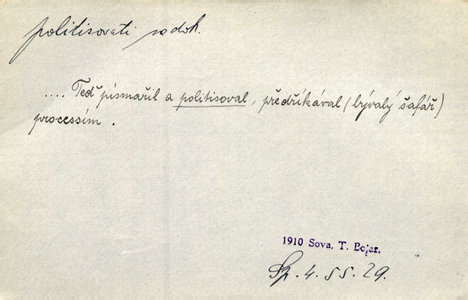 politisovati nedok.
.... Teď písmařil a politisoval, předříkával (bývalý šafář)
processím.
1910 Sova. T. Bojar.
Sp. 4. SS. 29.